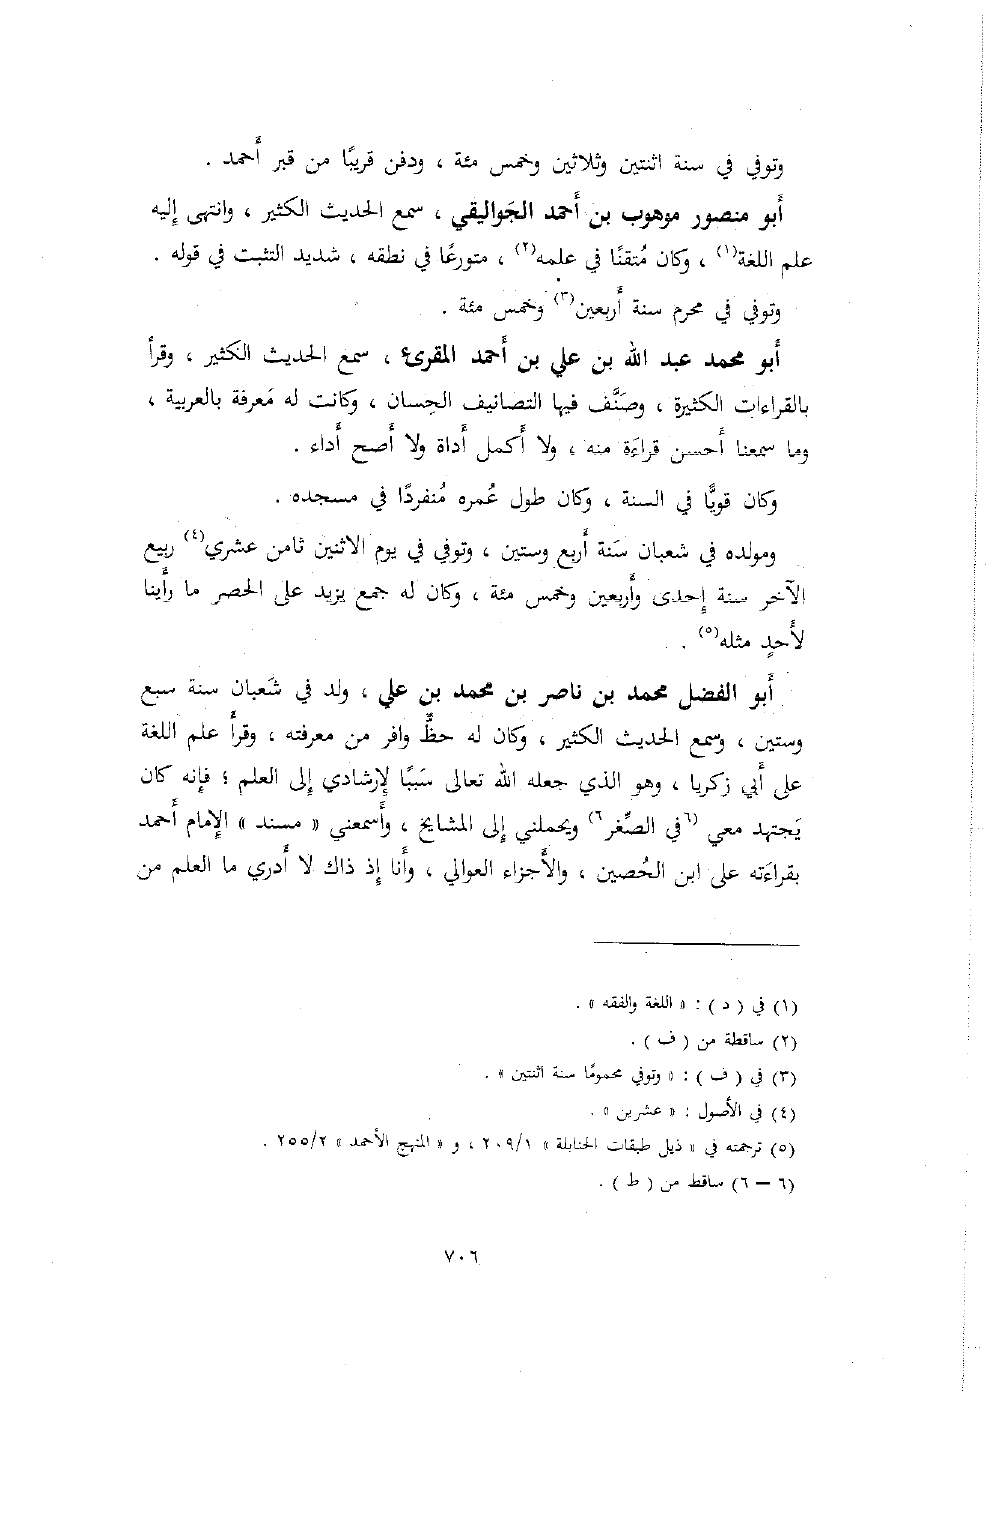 وتوفي في سنة اثنتين وثلاثين وخمس مئة ، ودفن قريبًا من قبر أَحمد .
أَبو منصور موهوب بن أَحمد الجَواليقي ، سمع الحديث الكثير ، وانتهى إِليه
علم اللغة(١) ، وكان مُتقنًا في علمه(٢) ، متورعًا في نطقه ، شديد التثبت في قوله .
وتوفي في محرم سنة أَربعين(٣) وخمس مئة .
أَبو محمد عبد الله بن علي بن أَحمد المقرئ ، سمع الحديث الكثير ، وقرأَ
بالقراءات الكثيرة ، وصَنَّف فيها التصانيف الحِسان ، وكانت له مَعرفة بالعربية ،
وما سمعنا أَحسن قراءَة منه ، ولا أَكمل أَداة ولا أَصح أَداء .
وكان قويًّا في السنة ، وكان طول عُمره مُنفردًا في مسجده .
ومولده في شعبان سَنة أَربع وستين ، وتوفي في يوم الاثنين ثامن عشري(٤) ربيع
الآخر سنة إِحدى وأَربعين وخمس مئة ، وكان له جمع يزيد على الحصر ما رأَينا
لأَحدٍ مثله(٥) .
أَبو الفضل محمد بن ناصر بن محمد بن علي ، ولد في شَعبان سنة سبع
وستين ، وسمع الحديث الكثير ، وكان له حظٌّ وافر من معرفته ، وقرأَ علم اللغة
على أَبي زكريا ، وهو الذي جعله الله تعالى سَببًا لإِرشادي إِلى العلم ؛ فإِنه كان
يَجتهد معي (٦في الصِّغر٦) ويحملني إِلى المشايخ ، وأَسمعني « مسند » الإِمام أَحمد
بقراءَته على ابن الحُصين ، والأَجزاء العوالي ، وأَنا إِذ ذاك لا أَدري ما العلم من
(١) في ( د ) : « اللغة والفقه » .
(٢) ساقطة من ( ف ) .
(٣) في ( ف ) : « وتوفي محمومًا سنة اثنتين » .
(٤) في الأصول : « عشرين » .
(٥) ترجمته في « ذيل طبقات الحنابلة » ٢٠٩/١ ، و « المنهج الأحمد » ٢٥٥/٢ .
(٦ – ٦) ساقط من ( ط ) .
٧٠٦